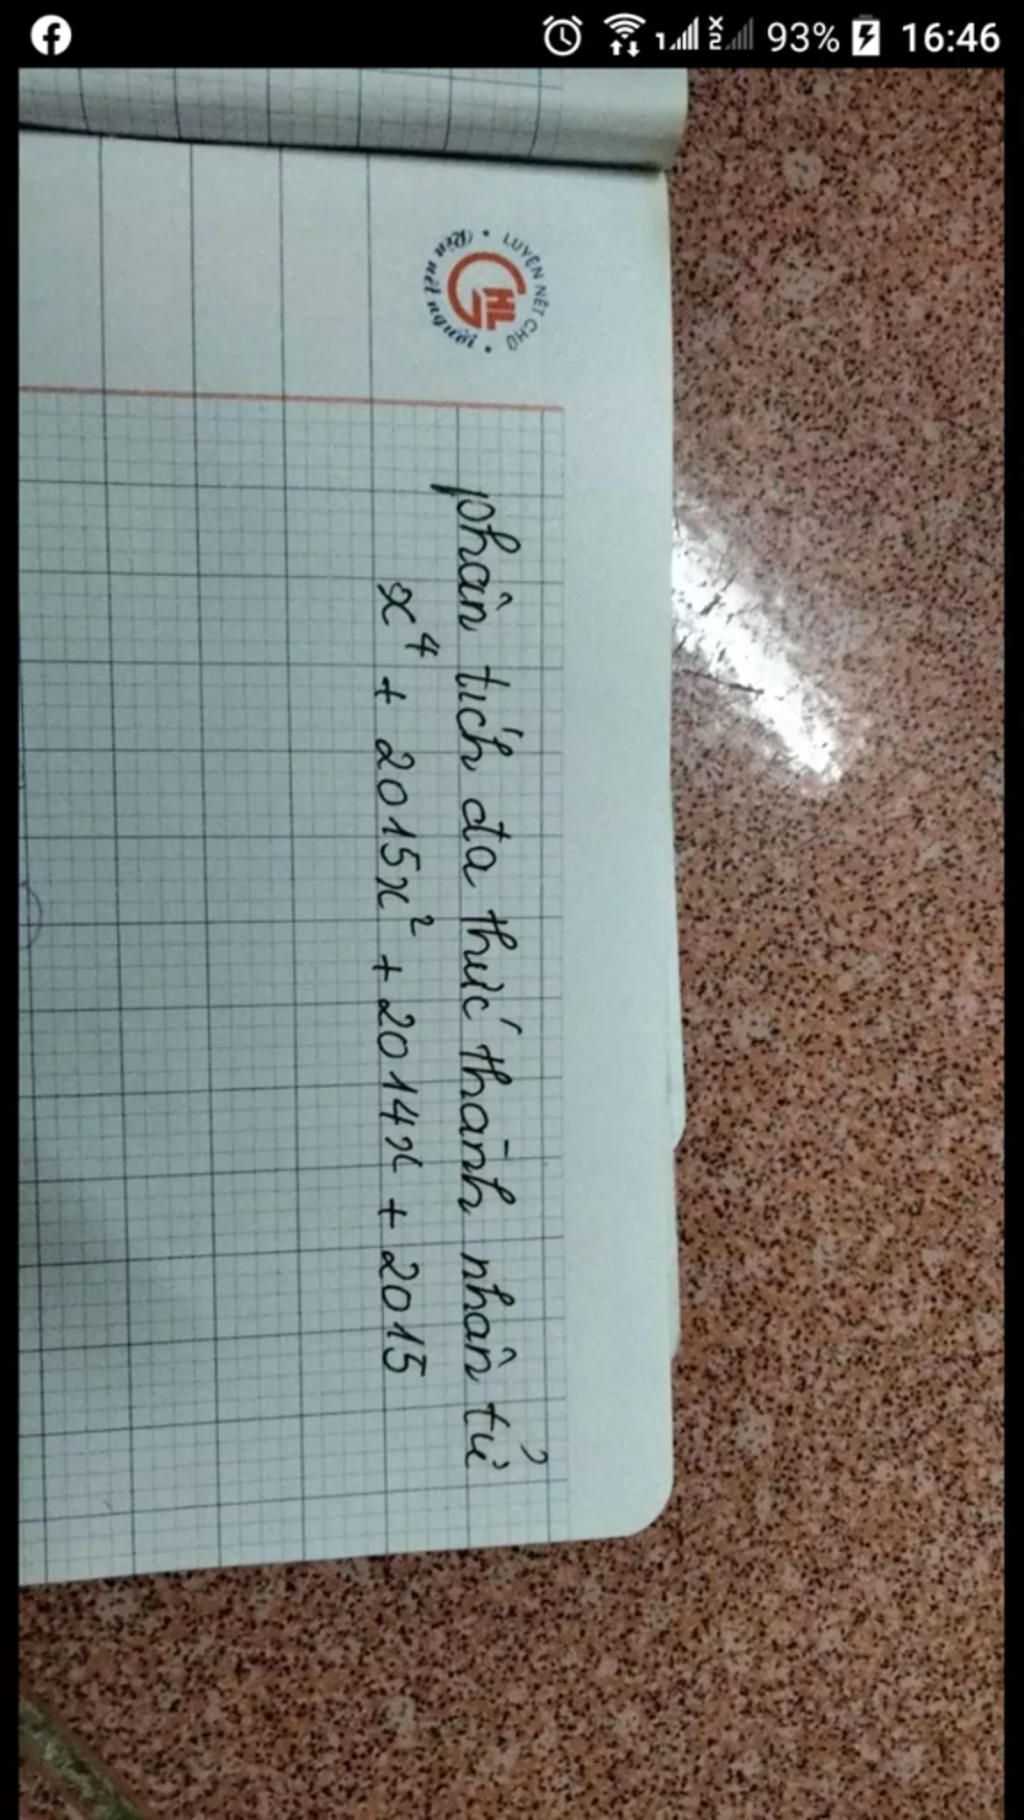 93% 16:46
LUYỆN NÉT CHỮ
Rèn nết người
HL
phân tích đa thức thành nhân tử
x⁴ + 2015x² + 2014x + 2015